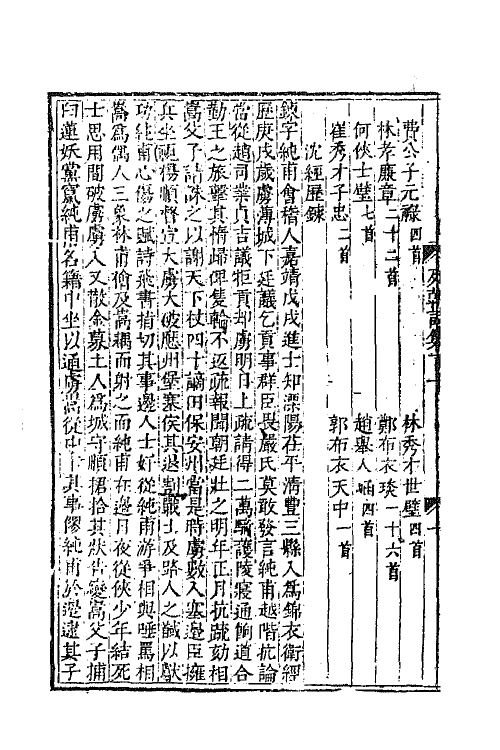 費公子元祿四首
林秀才世璧四首
林孝廉章二十二首
鄭布衣琰一十六首
何俠士璧七首
趙舉人㟙四首
崔秀才子忠二首
郭布衣天中一首
沈經歷鍊
鍊字純甫會稽人嘉靖戊戌進士知溧陽茌平清豐三縣入為錦衣衛經
歷庚戌歲虜薄城下廷議乞貢事群臣畏嚴氏莫敢發言純甫越階抗論
當從趙司業貞吉議拒貢却虜明日上疏請得二萬騎護陵寢通餉道合
勤王之旅擊其惰歸俾隻輪不返疏報聞朝廷壯之明年正月抗疏劾相
嵩父子請誅之以謝天下杖四十謫田保安州當是時虜數入塞邊臣擁
兵坐視楊順督宣大虜大破應州堡寨俟其退割戰士及路人之馘以獻
功純甫心傷之賦詩飛書指切其事邊人士好從純甫游爭相與唾罵相
嵩為偶人三象林甫檜及嵩耦而射之而純甫在邊月夜從俠少年結死
士思用間破虜虜入又散金募土人為城守順捃拾其狀告變嵩父子捕
白蓮妖黨竄純甫名籍中坐以通虜嵩從中下其事僇純甫於邊逮其子